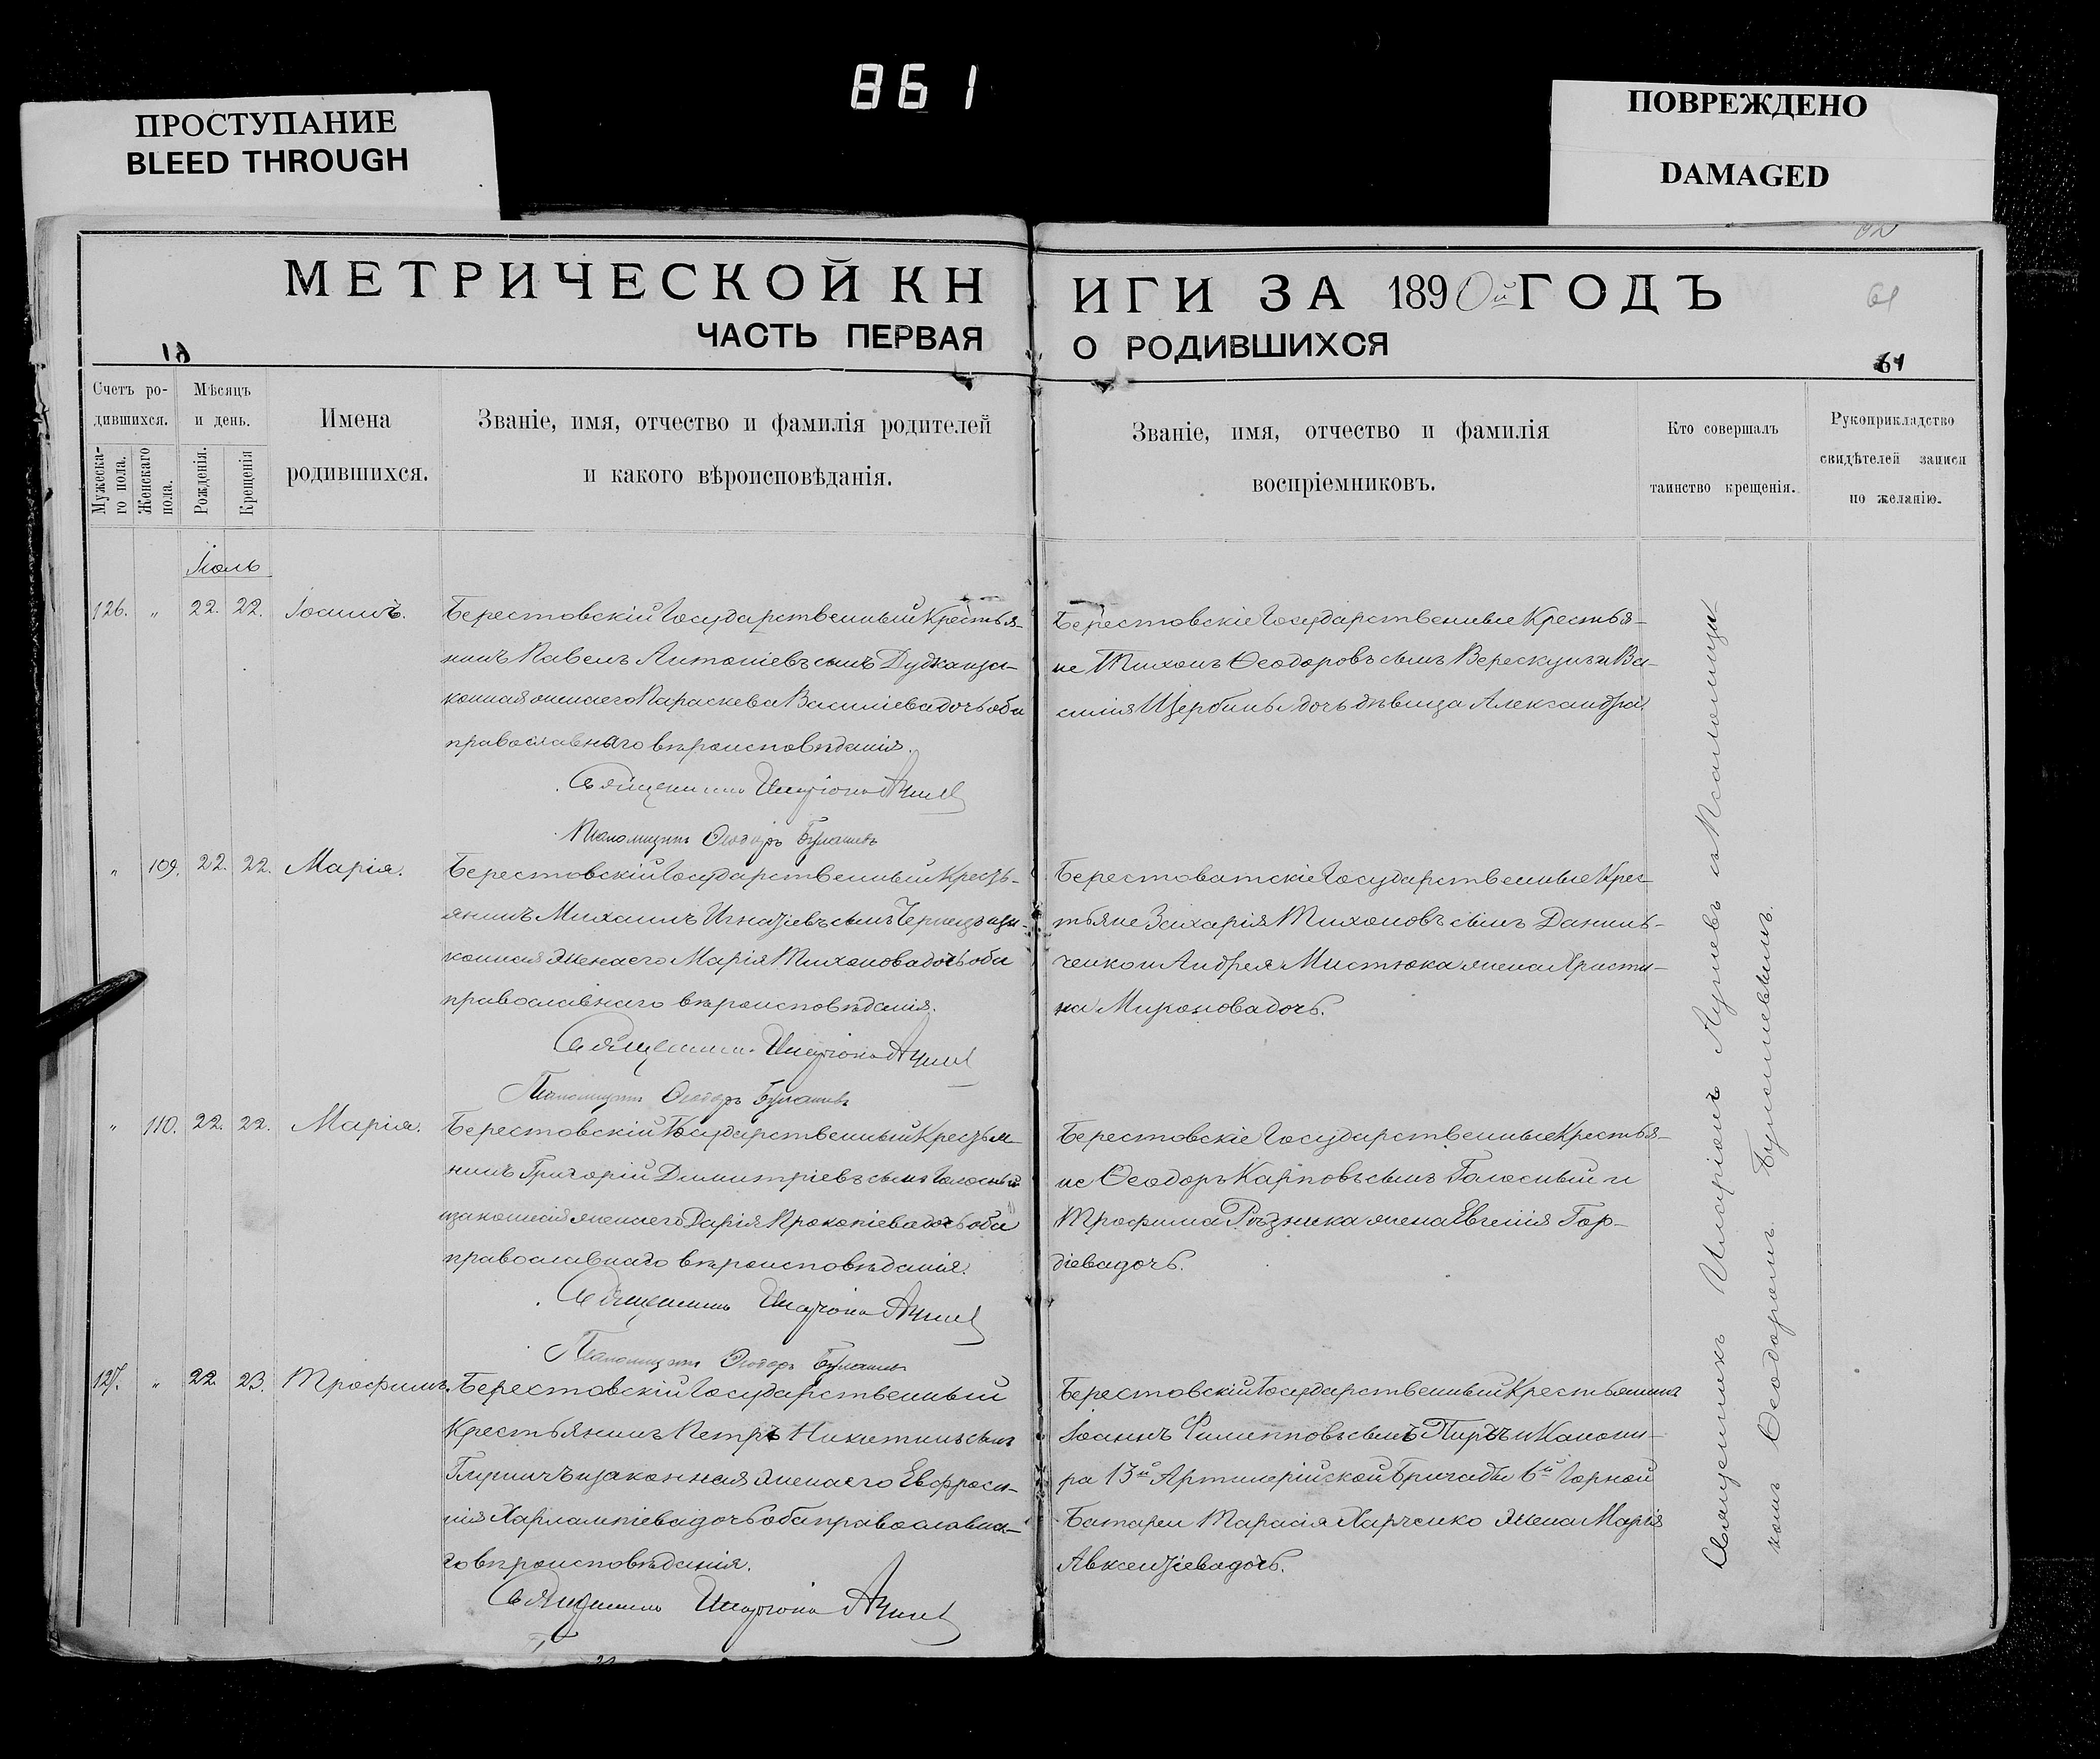 861
ПРОСТУПАНИЕ
BLEED THROUGH
ПОВРЕЖДЕНО
DAMAGED
МЕТРИЧЕСКОЙ КНИГИ ЗА 1890й ГОДЪ
ЧАСТЬ ПЕРВАЯ О РОДИВШИХСЯ
61
61
Счетъ ро-
дившихся.
Мужеска-
го пола.
Женскаго
пола.
Мѣсяцъ
и день.
Рожденія.
Крещенія
Имена
родившихся.
Званіе, имя, отчество и фамилія родителей
и какого вѣроисповѣданія.
Званіе, имя, отчество и фамилія
воспріемниковъ.
Кто совершалъ
таинство крещенія.
Рукоприкладство
свидѣтелей записи
по желанію.
Іюль
126. " 22. 22. Іоаннъ.
Берестовскій Государственный Крестья-
нинъ Павелъ Антоніевъ сынъ Дудка и за-
конная жена его Параскева Василіева дочь оба
православнаго вѣроисповѣданія.
Священникъ Иларіонъ
Псаломщикъ Ѳеодоръ
Берестовскіе Государственные Крестья-
не Тихонъ Ѳеодоровъ сынъ Верескунъ и Ва-
силія Щербины дочь дѣвица Александра
" 109. 22. 22. Марія.
Берестовскій Государственный Кресть-
янинъ Михаилъ Игнатіевъ сынъ и за-
конная жена его Марія Тихонова дочь оба
православнаго вѣроисповѣданія.
Священникъ Иларіонъ
Псаломщикъ Ѳеодоръ
Берестоватскіе Государственные Крес-
тьяне Захарія Тихоновъ сынъ Даниль-
ченко и Андрея Мистюка жена Христи-
на Миронова дочь.
" 110. 22. 22. Марія.
Берестовскій Государственный Крестья-
нинъ Григорій Димитріевъ сынъ Голосный
и законная жена его Дарія Прокопіева дочь оба
православнаго вѣроисповѣданія.
Священникъ Иларіонъ
Псаломщикъ Ѳеодоръ
Берестовскіе Государственные Крестья-
не Ѳеодоръ Карповъ сынъ Голосный и
Трофима Рѣзника жена Евгенія Гор-
діева дочь.
127. " 22. 23. Трофимъ.
Берестовскій Государственный
Крестьянинъ Петръ Никитинъ сынъ
и законная жена его Евфроси-
нія Харлампіева дочь оба православна-
го вѣроисповѣданія.
Священникъ Иларіонъ
Берестовскій Государственный Крестьянинъ
Іоаннъ Филипповъ сынъ и Канони-
ра 13й Артилерійской Бригады 6й Горной
Батареи Тарасія Харченко жена Марія
Авксентіева дочь.
Священникъ Иларіонъ съ Псаломщи-
комъ Ѳеодоромъ